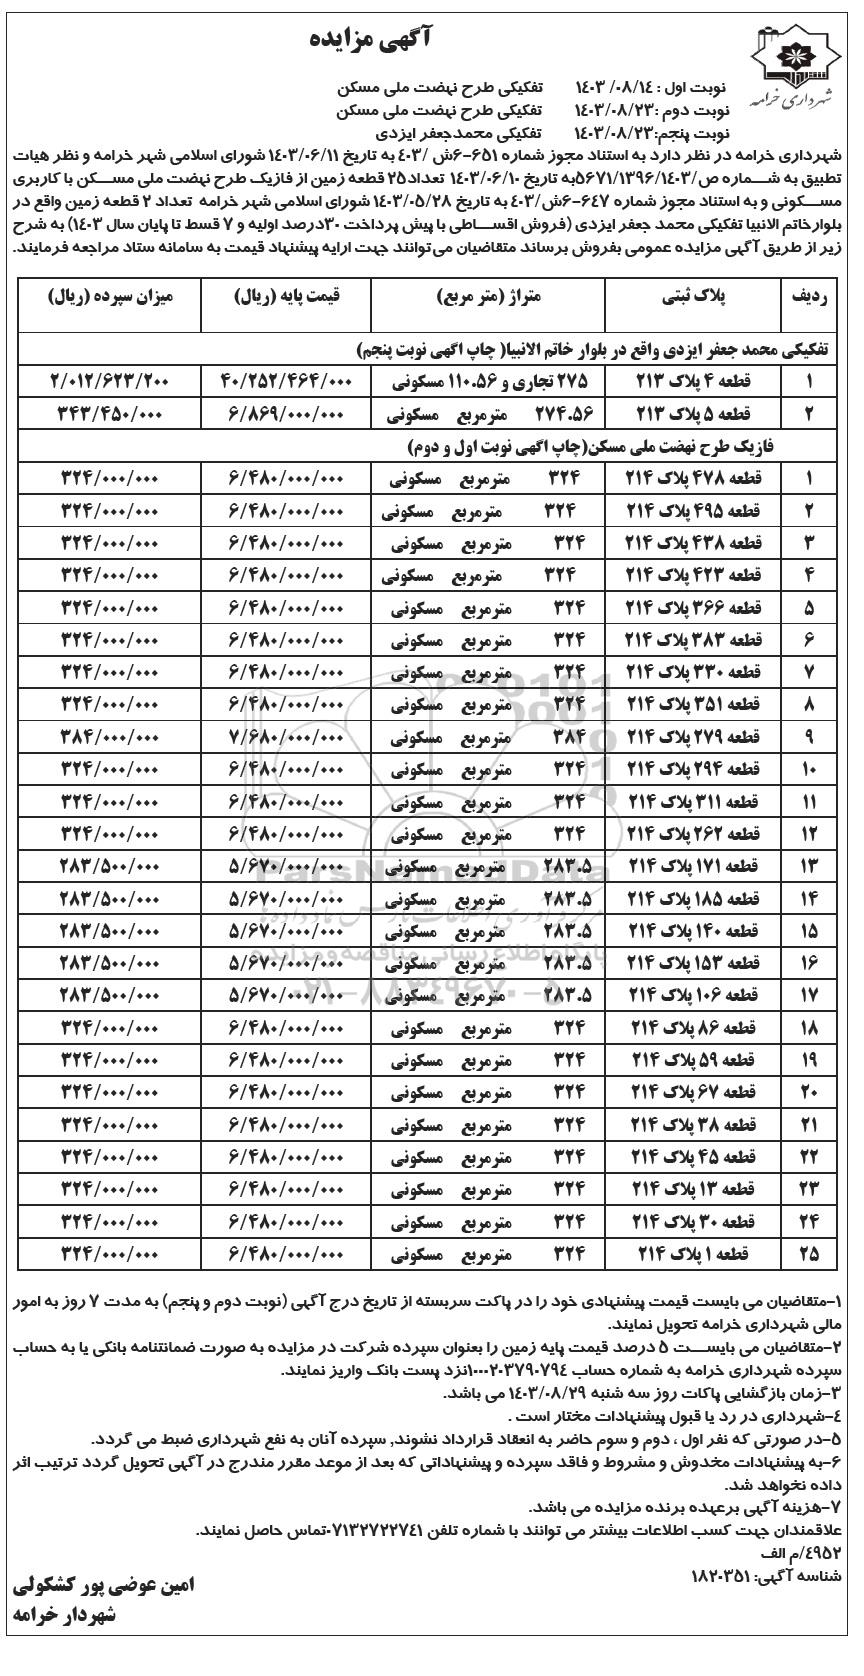 آگهی مزایده
شهرداری خرامه
نوبت اول : ۱۴۰۳/۰۸/۱۴ تفکیکی طرح نهضت ملی مسکن
نوبت دوم :۱۴۰۳/۰۸/۲۳ تفکیکی طرح نهضت ملی مسکن
نوبت پنجم:۱۴۰۳/۰۸/۲۳ تفکیکی محمدجعفر ایزدی
شهرداری خرامه در نظر دارد به استناد مجوز شماره ۶۵۱-۶ش /۴۰۳ به تاریخ ۱۴۰۳/۰۶/۱۱ شورای اسلامی شهر خرامه و نظر هیات
تطبیق به شماره ص/۵۶۷۱/۱۳۹۶/۱۴۰۳به تاریخ ۱۴۰۳/۰۶/۱۰ تعداد۲۵ قطعه زمین از فازیک طرح نهضت ملی مسکن با کاربری
مسکونی و به استناد مجوز شماره ۶۴۷-۶ش/۴۰۳ به تاریخ ۱۴۰۳/۰۵/۲۸ شورای اسلامی شهر خرامه تعداد ۲ قطعه زمین واقع در
بلوارخاتم الانبیا تفکیکی محمد جعفر ایزدی (فروش اقساطی با پیش پرداخت ۳۰درصد اولیه و ۷ قسط تا پایان سال ۱۴۰۳) به شرح
زیر از طریق آگهی مزایده عمومی بفروش برساند متقاضیان می‌توانند جهت ارایه پیشنهاد قیمت به سامانه ستاد مراجعه فرمایند.
ردیف پلاک ثبتی متراژ (متر مربع) قیمت پایه (ریال) میزان سپرده (ریال)
تفکیکی محمد جعفر ایزدی واقع در بلوار خاتم الانبیا( چاپ اگهی نوبت پنجم)
۱ قطعه ۴ پلاک ۲۱۳ ۲۷۵ تجاری و ۱۱۰.۵۶ مسکونی ۴۰/۲۵۲/۴۶۴/۰۰۰ ۲/۰۱۲/۶۲۳/۲۰۰
۲ قطعه ۵ پلاک ۲۱۳ ۲۷۴.۵۶ مترمربع مسکونی ۶/۸۶۹/۰۰۰/۰۰۰ ۳۴۳/۴۵۰/۰۰۰
فازیک طرح نهضت ملی مسکن(چاپ اگهی نوبت اول و دوم)
۱ قطعه ۴۷۸ پلاک ۲۱۴ ۳۲۴ مترمربع مسکونی ۶/۴۸۰/۰۰۰/۰۰۰ ۳۲۴/۰۰۰/۰۰۰
۲ قطعه ۴۹۵ پلاک ۲۱۴ ۳۲۴ مترمربع مسکونی ۶/۴۸۰/۰۰۰/۰۰۰ ۳۲۴/۰۰۰/۰۰۰
۳ قطعه ۴۳۸ پلاک ۲۱۴ ۳۲۴ مترمربع مسکونی ۶/۴۸۰/۰۰۰/۰۰۰ ۳۲۴/۰۰۰/۰۰۰
۴ قطعه ۴۲۳ پلاک ۲۱۴ ۳۲۴ مترمربع مسکونی ۶/۴۸۰/۰۰۰/۰۰۰ ۳۲۴/۰۰۰/۰۰۰
۵ قطعه ۳۶۶ پلاک ۲۱۴ ۳۲۴ مترمربع مسکونی ۶/۴۸۰/۰۰۰/۰۰۰ ۳۲۴/۰۰۰/۰۰۰
۶ قطعه ۳۸۳ پلاک ۲۱۴ ۳۲۴ مترمربع مسکونی ۶/۴۸۰/۰۰۰/۰۰۰ ۳۲۴/۰۰۰/۰۰۰
۷ قطعه ۳۳۰ پلاک ۲۱۴ ۳۲۴ مترمربع مسکونی ۶/۴۸۰/۰۰۰/۰۰۰ ۳۲۴/۰۰۰/۰۰۰
۸ قطعه ۳۵۱ پلاک ۲۱۴ ۳۲۴ مترمربع مسکونی ۶/۴۸۰/۰۰۰/۰۰۰ ۳۲۴/۰۰۰/۰۰۰
۹ قطعه ۲۷۹ پلاک ۲۱۴ ۳۸۴ مترمربع مسکونی ۷/۶۸۰/۰۰۰/۰۰۰ ۳۸۴/۰۰۰/۰۰۰
۱۰ قطعه ۲۹۴ پلاک ۲۱۴ ۳۲۴ مترمربع مسکونی ۶/۴۸۰/۰۰۰/۰۰۰ ۳۲۴/۰۰۰/۰۰۰
۱۱ قطعه ۳۱۱ پلاک ۲۱۴ ۳۲۴ مترمربع مسکونی ۶/۴۸۰/۰۰۰/۰۰۰ ۳۲۴/۰۰۰/۰۰۰
۱۲ قطعه ۲۶۲ پلاک ۲۱۴ ۳۲۴ مترمربع مسکونی ۶/۴۸۰/۰۰۰/۰۰۰ ۳۲۴/۰۰۰/۰۰۰
۱۳ قطعه ۱۷۱ پلاک ۲۱۴ ۲۸۳.۵ مترمربع مسکونی ۵/۶۷۰/۰۰۰/۰۰۰ ۲۸۳/۵۰۰/۰۰۰
۱۴ قطعه ۱۸۵ پلاک ۲۱۴ ۲۸۳.۵ مترمربع مسکونی ۵/۶۷۰/۰۰۰/۰۰۰ ۲۸۳/۵۰۰/۰۰۰
۱۵ قطعه ۱۴۰ پلاک ۲۱۴ ۲۸۳.۵ مترمربع مسکونی ۵/۶۷۰/۰۰۰/۰۰۰ ۲۸۳/۵۰۰/۰۰۰
۱۶ قطعه ۱۵۳ پلاک ۲۱۴ ۲۸۳.۵ مترمربع مسکونی ۵/۶۷۰/۰۰۰/۰۰۰ ۲۸۳/۵۰۰/۰۰۰
۱۷ قطعه ۱۰۶ پلاک ۲۱۴ ۲۸۳.۵ مترمربع مسکونی ۵/۶۷۰/۰۰۰/۰۰۰ ۲۸۳/۵۰۰/۰۰۰
۱۸ قطعه ۸۶ پلاک ۲۱۴ ۳۲۴ مترمربع مسکونی ۶/۴۸۰/۰۰۰/۰۰۰ ۳۲۴/۰۰۰/۰۰۰
۱۹ قطعه ۵۹ پلاک ۲۱۴ ۳۲۴ مترمربع مسکونی ۶/۴۸۰/۰۰۰/۰۰۰ ۳۲۴/۰۰۰/۰۰۰
۲۰ قطعه ۶۷ پلاک ۲۱۴ ۳۲۴ مترمربع مسکونی ۶/۴۸۰/۰۰۰/۰۰۰ ۳۲۴/۰۰۰/۰۰۰
۲۱ قطعه ۳۸ پلاک ۲۱۴ ۳۲۴ مترمربع مسکونی ۶/۴۸۰/۰۰۰/۰۰۰ ۳۲۴/۰۰۰/۰۰۰
۲۲ قطعه ۴۵ پلاک ۲۱۴ ۳۲۴ مترمربع مسکونی ۶/۴۸۰/۰۰۰/۰۰۰ ۳۲۴/۰۰۰/۰۰۰
۲۳ قطعه ۱۳ پلاک ۲۱۴ ۳۲۴ مترمربع مسکونی ۶/۴۸۰/۰۰۰/۰۰۰ ۳۲۴/۰۰۰/۰۰۰
۲۴ قطعه ۳۰ پلاک ۲۱۴ ۳۲۴ مترمربع مسکونی ۶/۴۸۰/۰۰۰/۰۰۰ ۳۲۴/۰۰۰/۰۰۰
۲۵ قطعه ۱ پلاک ۲۱۴ ۳۲۴ مترمربع مسکونی ۶/۴۸۰/۰۰۰/۰۰۰ ۳۲۴/۰۰۰/۰۰۰
ParsNamadData
پایگاه اطلاع رسانی مناقصه و مزایده
۰۲۱-۸۸۳۴۹۶۷۰-۵
۱-متقاضیان می بایست قیمت پیشنهادی خود را در پاکت سربسته از تاریخ درج آگهی (نوبت دوم و پنجم) به مدت ۷ روز به امور
مالی شهرداری خرامه تحویل نمایند.
۲-متقاضیان می بایست ۵ درصد قیمت پایه زمین را بعنوان سپرده شرکت در مزایده به صورت ضمانتنامه بانکی یا به حساب
سپرده شهرداری خرامه به شماره حساب ۱۰۰۰۲۰۳۷۹۰۷۹۴نزد پست بانک واریز نمایند.
۳-زمان بازگشایی پاکات روز سه شنبه ۱۴۰۳/۰۸/۲۹ می باشد.
۴-شهرداری در رد یا قبول پیشنهادات مختار است .
۵-در صورتی که نفر اول ، دوم و سوم حاضر به انعقاد قرارداد نشوند, سپرده آنان به نفع شهرداری ضبط می گردد.
۶-به پیشنهادات مخدوش و مشروط و فاقد سپرده و پیشنهاداتی که بعد از موعد مقرر مندرج در آگهی تحویل گردد ترتیب اثر
داده نخواهد شد.
۷-هزینه آگهی برعهده برنده مزایده می باشد.
علاقمندان جهت کسب اطلاعات بیشتر می توانند با شماره تلفن ۰۷۱۳۲۷۲۲۷۴۱تماس حاصل نمایند.
۴۹۵۲/م الف
شناسه آگهی: ۱۸۲۰۳۵۱
امین عوضی پور کشکولی
شهردار خرامه